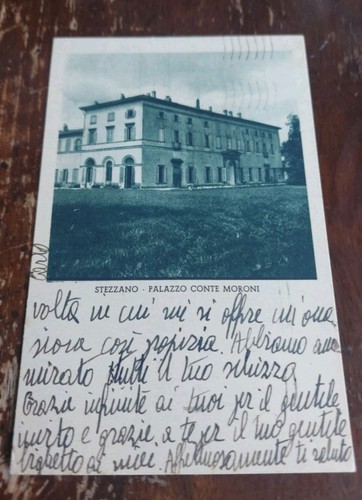 STEZZANO - PALAZZO CONTE MORONI
caro
volta in cui mi si offre un'oca
sione così propizia. Abbiamo am
mirato tutti il tuo
Grazie infinite ai tuoi per il gentile
invito e grazie, a te per il tuo gentile
biglietto di Affettuosamente ti saluto